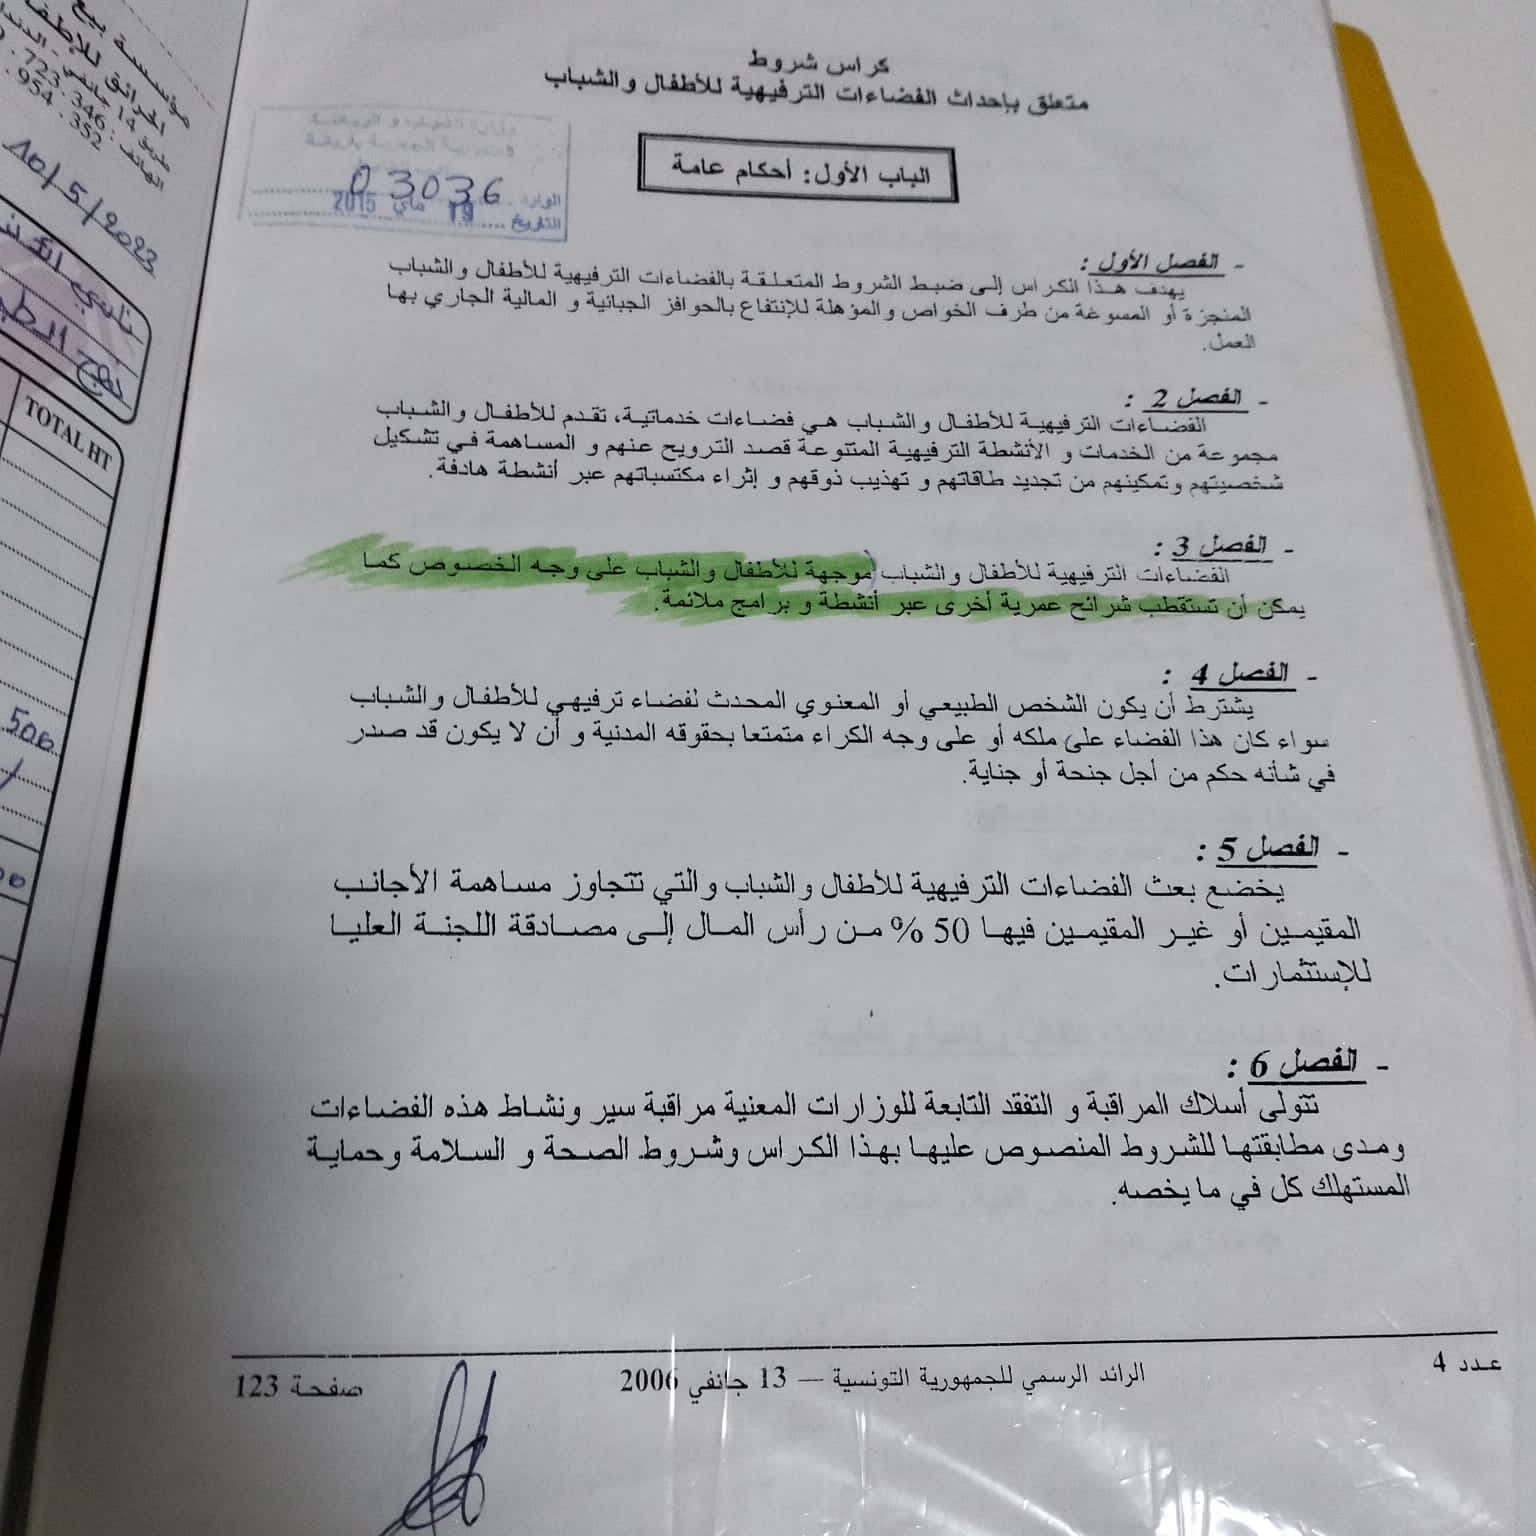 كراس شروط
متعلق بإحداث الفضاءات الترفيهية للأطفال والشباب
الباب الأول: أحكام عامة
الوارد 03036
التاريخ 19 ماي 2015
- الفصل الأول :
يهدف هذا الكراس إلى ضبط الشروط المتعلقة بالفضاءات الترفيهية للأطفال والشباب
المنجزة أو المسوغة من طرف الخواص والمؤهلة للإنتفاع بالحوافز الجبائية و المالية الجاري بها
العمل.
- الفصل 2 :
الفضاءات الترفيهية للأطفال والشباب هي فضاءات خدماتية، تقدم للأطفال والشباب
مجموعة من الخدمات و الأنشطة الترفيهية المتنوعة قصد الترويح عنهم و المساهمة في تشكيل
شخصيتهم وتمكينهم من تجديد طاقاتهم و تهذيب ذوقهم و إثراء مكتسباتهم عبر أنشطة هادفة.
- الفصل 3 :
الفضاءات الترفيهية للأطفال والشباب موجهة للأطفال والشباب على وجه الخصوص كما
يمكن أن تستقطب شرائح عمرية أخرى عبر أنشطة و برامج ملائمة.
- الفصل 4 :
يشترط أن يكون الشخص الطبيعي أو المعنوي المحدث لفضاء ترفيهي للأطفال والشباب
سواء كان هذا الفضاء على ملكه أو على وجه الكراء متمتعا بحقوقه المدنية و أن لا يكون قد صدر
في شأنه حكم من أجل جنحة أو جناية.
- الفصل 5 :
يخضع بعث الفضاءات الترفيهية للأطفال والشباب والتي تتجاوز مساهمة الأجانب
المقيمين أو غير المقيمين فيها 50 % من رأس المال إلى مصادقة اللجنة العليا
للإستثمارات.
- الفصل 6 :
تتولى أسلاك المراقبة و التفقد التابعة للوزارات المعنية مراقبة سير ونشاط هذه الفضاءات
ومدى مطابقتها للشروط المنصوص عليها بهذا الكراس وشروط الصحة و السلامة وحماية
المستهلك كل في ما يخصه.
عدد 4 الرائد الرسمي للجمهورية التونسية — 13 جانفي 2006 صفحة 123
مؤسسة بيع
طريق 14 جانفي
الهاتف : 723.346
954.352
10/5/2023
TOTAL HT
500